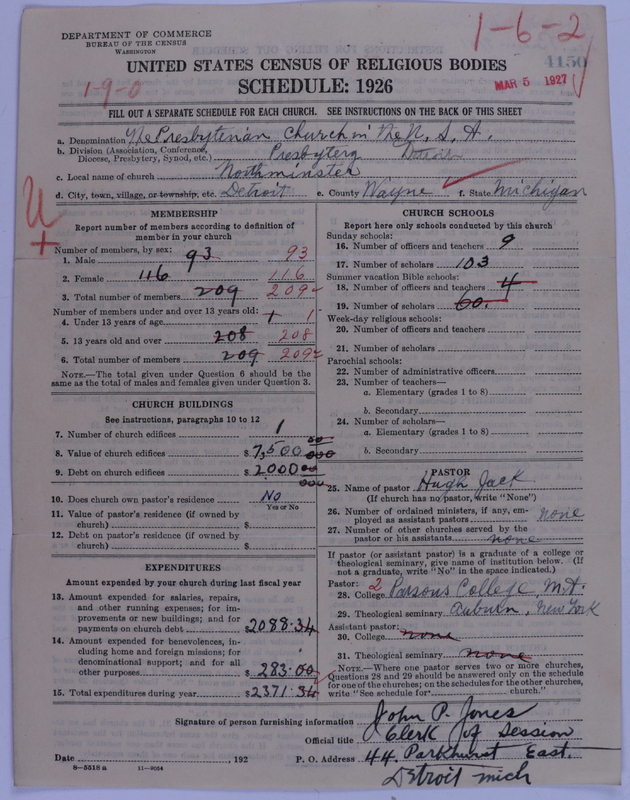 DEPARTMENT OF COMMERCE
BUREAU OF THE CENSUS
WASHINGTON
1-6-2
4150
1-9-0
UNITED STATES CENSUS OF RELIGIOUS BODIES
MAR 5 1927
SCHEDULE: 1926
FILL OUT A SEPARATE SCHEDULE FOR EACH CHURCH. SEE INSTRUCTIONS ON THE BACK OF THIS SHEET
a. Denomination The Presbyterian Church in the U. S. A.
b. Division (Association, Conference, Diocese, Presbytery, Synod, etc.) Presbytery Detroit
c. Local name of church Northminster
d. City, town, village, or township, etc. Detroit e. County Wayne f. State Michigan
MEMBERSHIP
Report number of members according to definition of
member in your church
Number of members, by sex:
1. Male 93 93
2. Female 116 116
3. Total number of members 209 209
Number of members under and over 13 years old:
4. Under 13 years of age 1 1
5. 13 years old and over 208 208
6. Total number of members 209 209
NOTE.—The total given under Question 6 should be the
same as the total of males and females given under Question 3.
CHURCH BUILDINGS
See instructions, paragraphs 10 to 12
7. Number of church edifices 1
8. Value of church edifices $ 7,500
9. Debt on church edifices $ 2000
10. Does church own pastor's residence No
Yes or No
11. Value of pastor's residence (if owned by
church) $
12. Debt on pastor's residence (if owned by
church) $
EXPENDITURES
Amount expended by your church during last fiscal year
13. Amount expended for salaries, repairs,
and other running expenses; for im-
provements or new buildings; and for
payments on church debt 2088.34
14. Amount expended for benevolences, in-
cluding home and foreign missions; for
denominational support; and for all
other purposes $ 283.00
15. Total expenditures during year $ 2371.34
CHURCH SCHOOLS
Report here only schools conducted by this church
Sunday schools:
16. Number of officers and teachers 9
17. Number of scholars 103
Summer vacation Bible schools:
18. Number of officers and teachers 4
19. Number of scholars 60.
Week-day religious schools:
20. Number of officers and teachers
21. Number of scholars
Parochial schools:
22. Number of administrative officers
23. Number of teachers—
a. Elementary (grades 1 to 8)
b. Secondary
24. Number of scholars—
a. Elementary (grades 1 to 8)
b. Secondary
PASTOR
25. Name of pastor Hugh Jack
(If church has no pastor, write "None")
26. Number of ordained ministers, if any, em-
ployed as assistant pastors none
27. Number of other churches served by the
pastor or his assistants none
If pastor (or assistant pastor) is a graduate of a college or
theological seminary, give name of institution below. (If
not a graduate, write "No" in the space indicated.)
Pastor: 2
28. College Parsons College, M.A.
29. Theological seminary Auburn, New York
Assistant pastor:
30. College none
31. Theological seminary none
NOTE.—Where one pastor serves two or more churches,
Questions 28 and 29 should be answered only on the schedule
for one of the churches; on the schedules for the other churches,
write "See schedule for church."
Signature of person furnishing information John P. Jones
Official title Clerk of Session
Date , 192 P. O. Address 44 Parkhurst East.
8-5518 a 11-9054
Detroit Mich